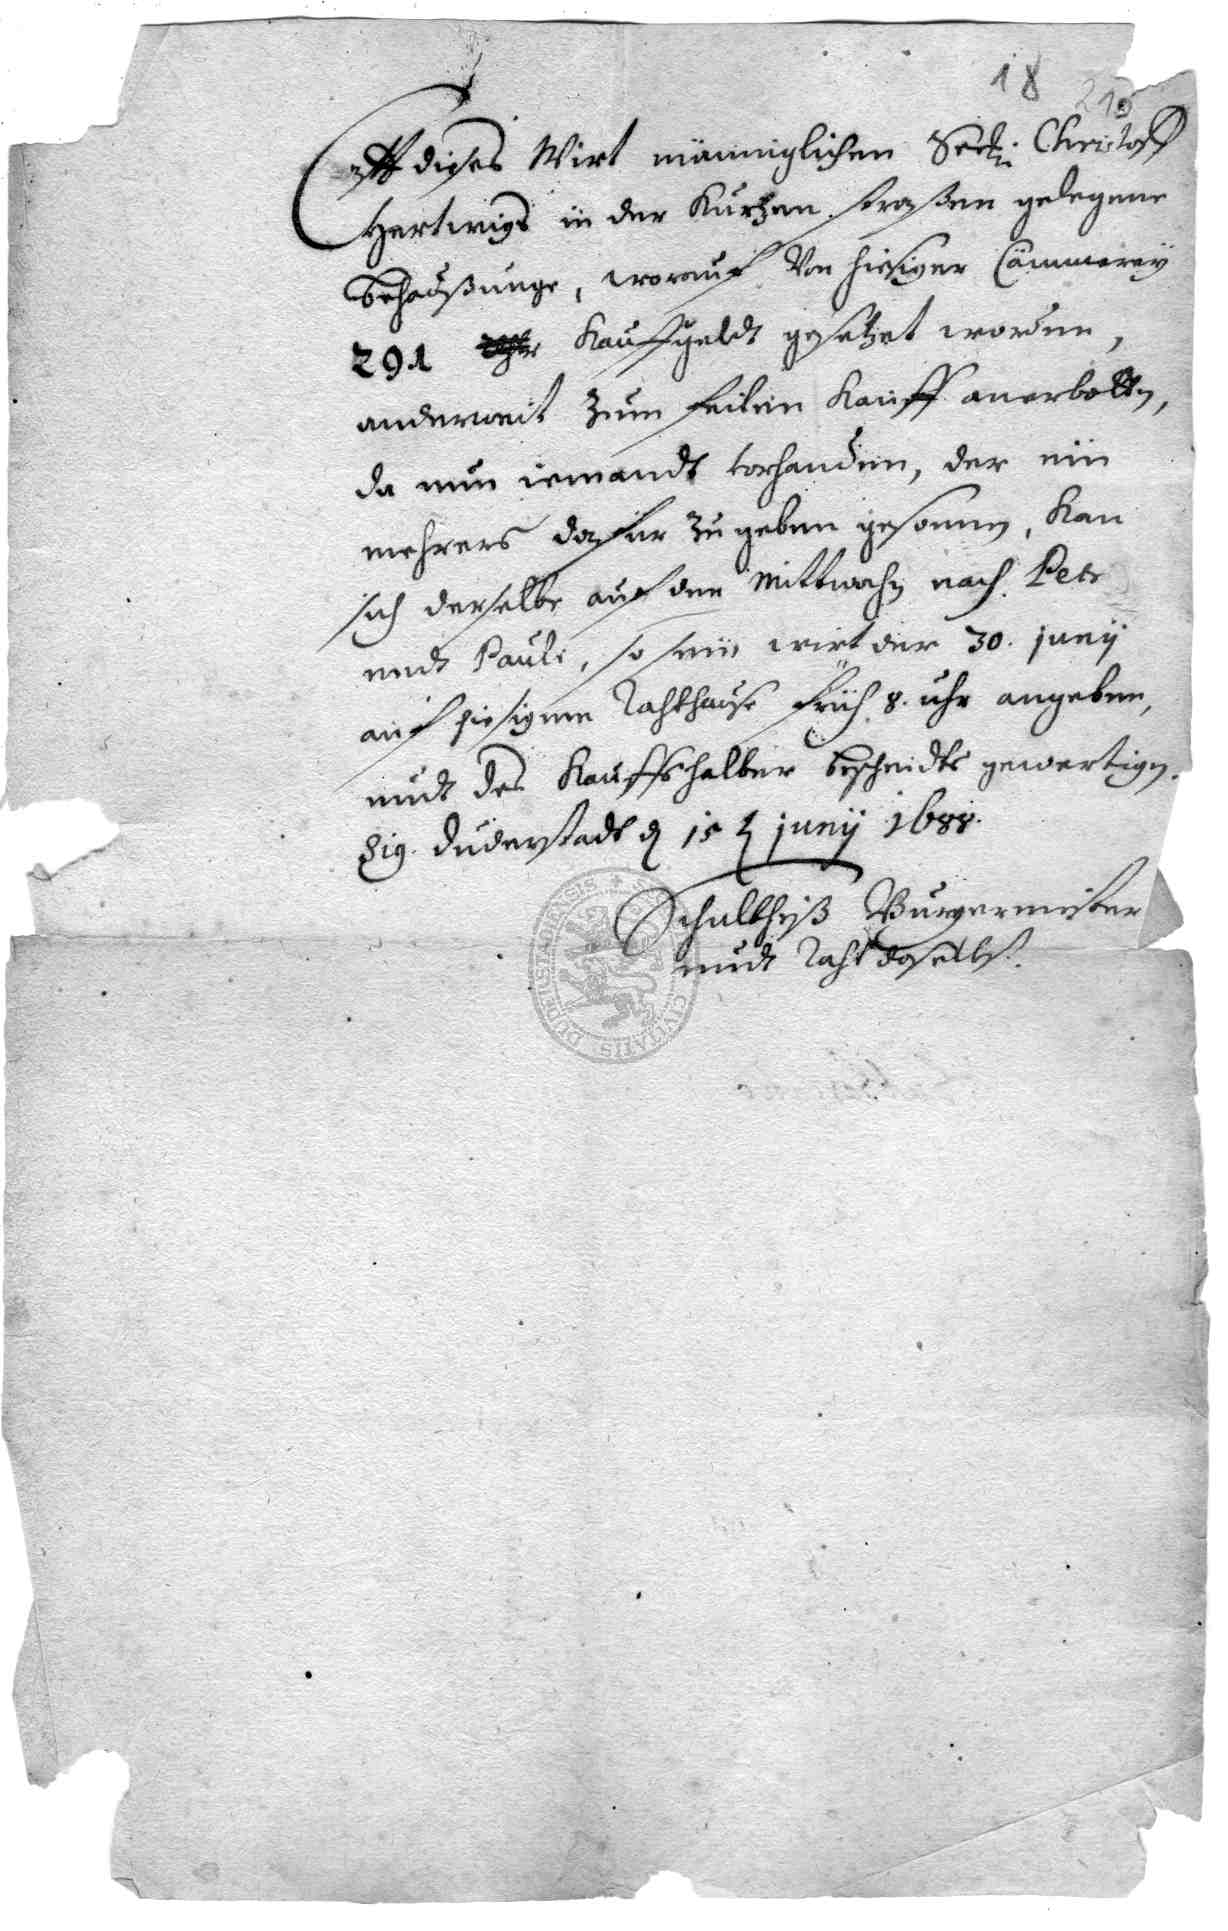 18
210
Crafft dieses Wirt männiglichen Seel: Christoff
Hertwigs in der Kurtzen straßen gelegene
behaußunge, worauf Von hiesiger Cämmerey
291 Kauffgeldt gesetzet worden,
anderweit Zum feilen Kauff anerbotten,
da nun iemandt vorhanden, der ein
mehrers dafür Zu geben gesonnen, Kan
sich derselbe auf den Mittwochen nach Petri
undt Pauli, so sein wirt der 30. junij
auf hiesigem Rahthause früh 8. uhr angeben,
undt des Kauffs halber bescheidts gewertigen.
Sig. Duderstadt d 15 t junij 1688.
Schultheiß Burgermeister
undt Raht daselbst.
DUDERSTADIENSIS
CIVITATIS